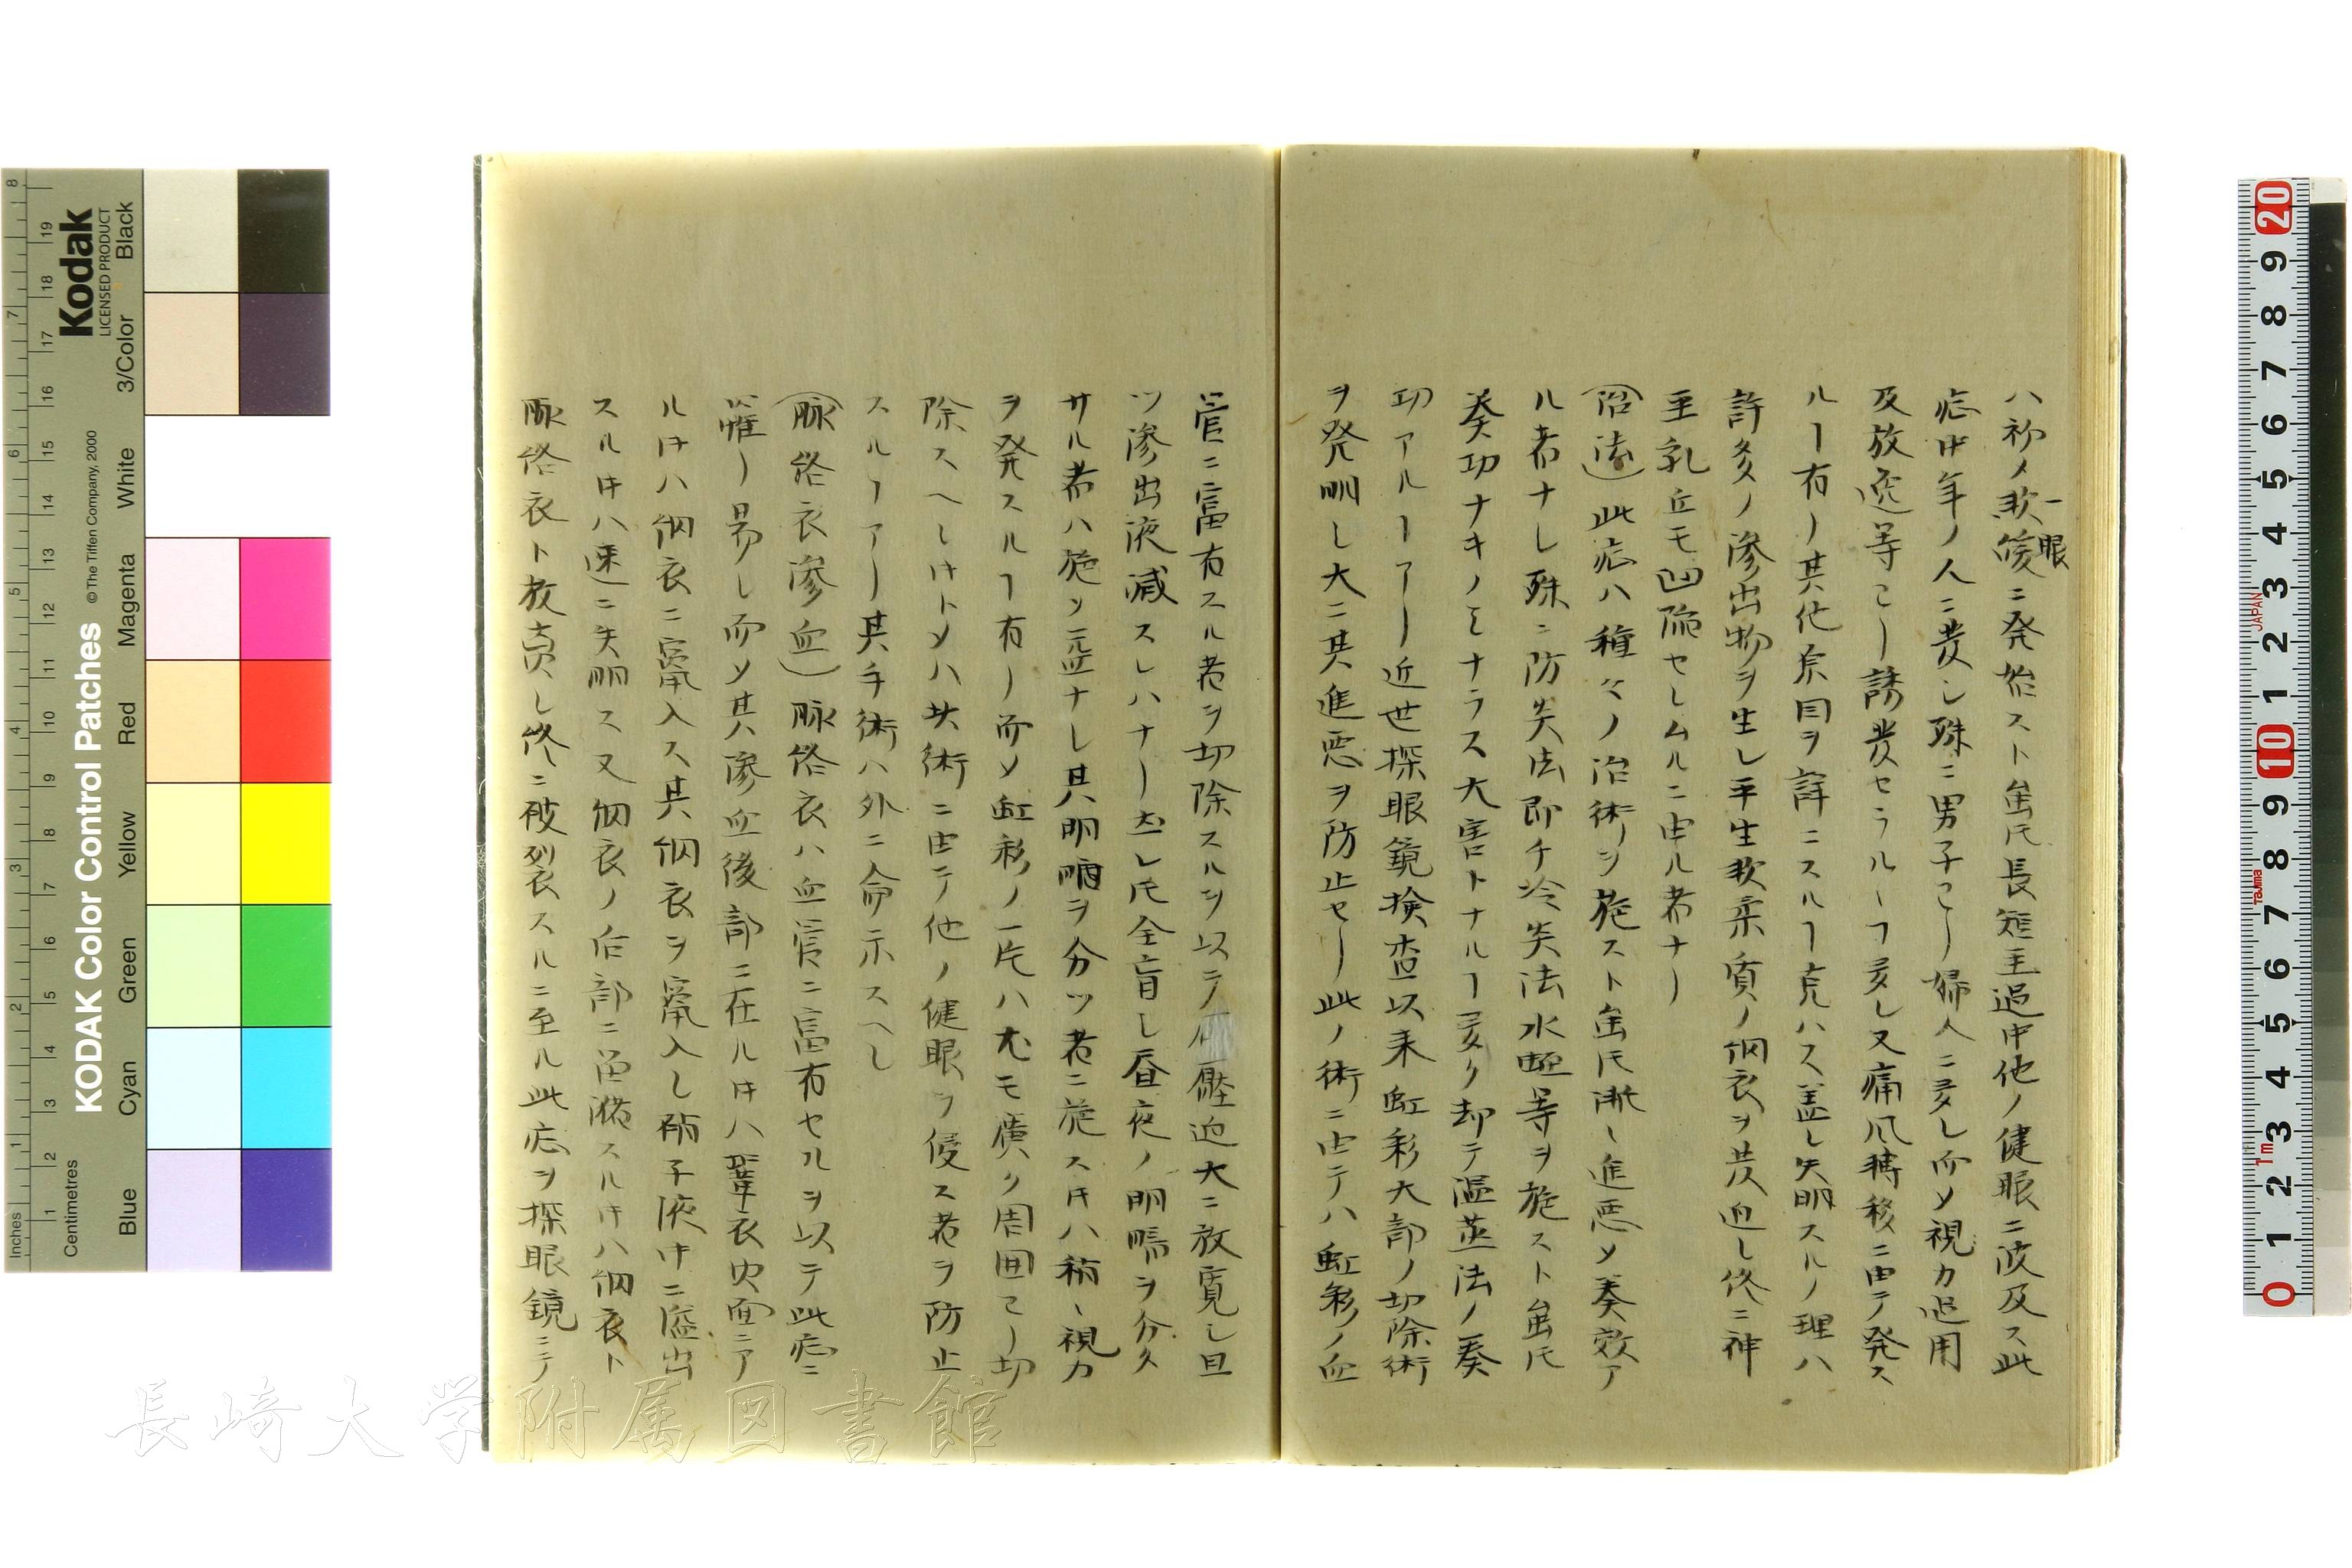 ハ初メ軟一眼ニ発始スト雖氏長短ヲ過中他ノ健眼ニ波及ス此
症中年ノ人ニ発シ殊ニ男子ニ多ク婦人ニ多シ而メ視力過用
及放逸等ニ誘発セラルヿ多シ又痛風轉移ニ由テ発ス
ルヿ有リ其他原因ヲ詳ニスルヿ克ハス盖シ失明スルノ理ハ
許多ノ滲出物ヲ生シ平生軟柔質ノ網衣ヲ圧迫シ終ニ神
至乳丘モ凹陥セシムルニ由ル者ナリ
(治法)此症ハ種々ノ治術ヲ施スト雖氏漸々進悪メ奏效ア
ル者ナシ殊ニ防炎法即チ冷炎法水蛭等ヲ施スト雖氏
奏功ナキノミナラス大害トナルヿ多ク却テ温蒸法ノ奏
功アルヿアリ近世探眼鏡検査以来虹彩大部ノ切除術
ヲ発明シ大ニ其進悪ヲ防止セリ此ノ術ニ由テハ虹彩ノ血
管ニ富有スル者ヲ切除スルヲ以テ壓迫大ニ放寛シ且
ツ滲出液減スレハナリ然レ氏全盲シ昼夜ノ明暗ヲ分タ
サル者ハ施ソ益ナシ其明暗ヲ分ツ者ニ施ス件ハ稍々視力
ヲ発スルヿ有リ而メ虹彩ノ一片ハ尤モ廣ク周囲ニ切
除スヘシ件トメハ其術ニ由テ他ノ健眼ヲ侵ス者ヲ防止
スルヿアリ其手術ハ外ニ命示スヘシ
(脉絡衣滲血)脉絡衣ハ血管ニ富有セルヲ以テ此症ニ
罹リ易シ而メ其滲血後部ニ在ル件ハ鞏衣内面ニア
ル件ハ網衣ニ竄入ス其網衣ヲ竄入シ硝子液中ニ溢出
スル件ハ速ニ失明ス又網衣ノ后部ニ留滞スル件ハ網衣ト
脉絡衣ト放賣シ終ニ破裂スルニ至ル此症ヲ探眼鏡ニテ
KODAK Color Control Patches
© The Tiffen Company, 2000
Kodak
LICENSED PRODUCT
Inches
Centimetres
Blue Cyan Green Yellow Red Magenta White 3/Color Black
長崎大学附属図書館